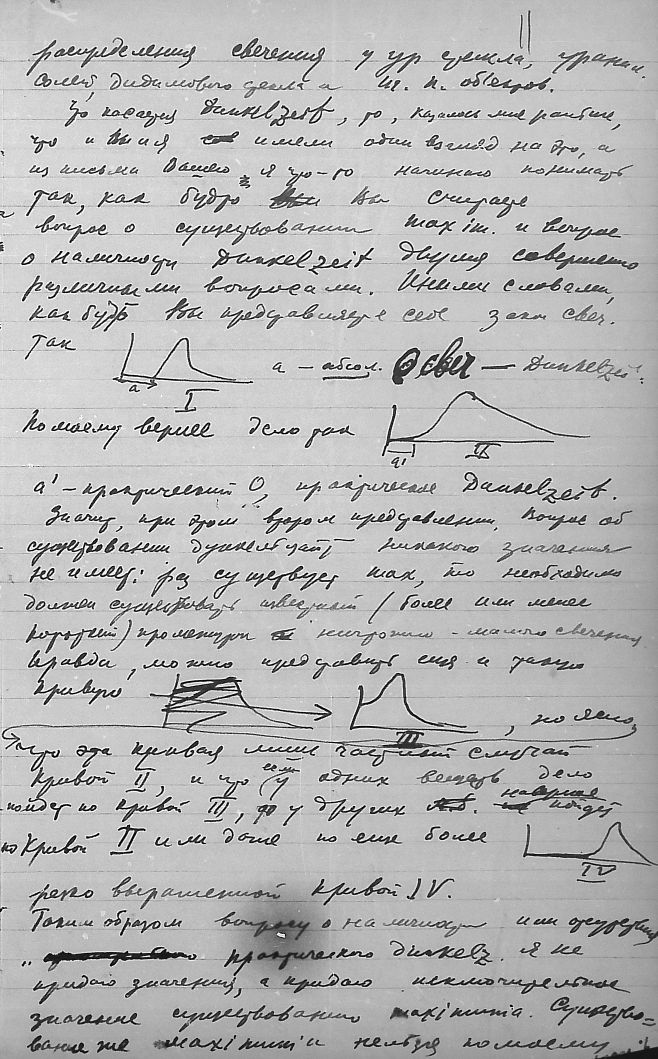 11
распределения свечения у ур стекла, уранил.
солей, дидимового стекла и т. п. объектов.
Что касается Dunkelzeit, то, казалось мне раньше,
что и Вы и я имели один взгляд на это, а
из письма Вашего я что-то начинаю понимать
так, как будто Вы считаете
вопрос о существовании maxim. и вопрос
о наличности Dunkelzeit двумя совершенно
различными вопросами. Иными словами,
как будто Вы представляете себе закон свеч.
так
a
I
a — абсол. 0 свеч — Dunkelzeit.
По моему вернее дело так
a'
II
a' — практический 0, практическое Dunkelzeit.
Значит, при этом втором представлении, вопрос об
существовании дункельцайт никакого значения
не имеет: раз существует max, то необходимо
должен существовать известный (более или менее
короткий) промежуток ничтожно-малого свечения.
Правда, можно представить себе и такую
кривую
III
, но ясно,
что эта кривая лишь частный случай
кривой II, и что если у одних веществ дело
пойдет по кривой III, то у других наверное пойдет
по кривой II или даже по еще более
IV
резко выраженной кривой IV.
Таким образом вопросу о наличности или отсутствия
„ практического dunkelz. я не
придаю значения, а придаю исключительное
значение существованию maximum'а. Существо-
вание же maximum'а нельзя по моему